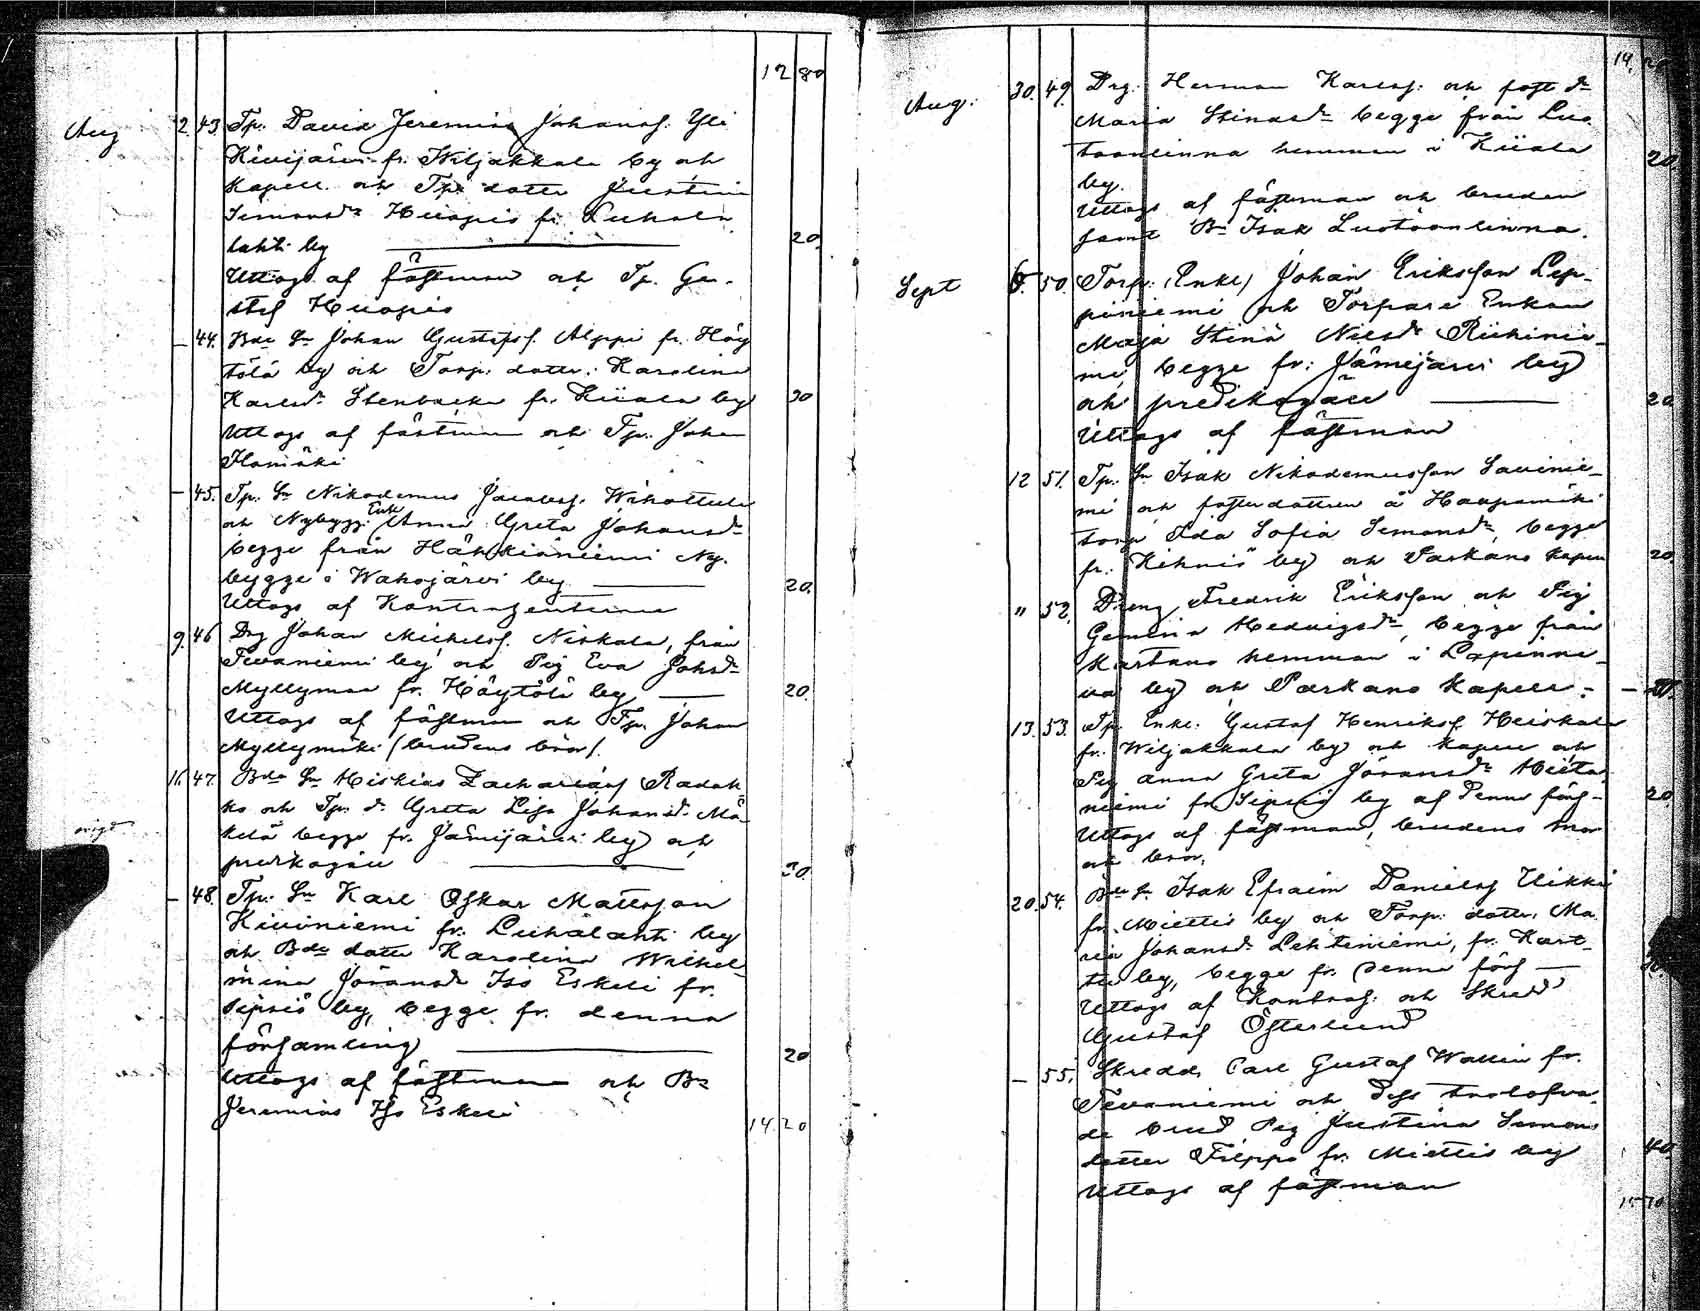 12 80
Aug 2. 43 Tp. David Jeremias Johansf. Yli
Kivijärvi fr. Wiljakkala by och
Kapell och Tps dotter Justina
Simonsdr Huopio fr. Luhala
lahti by 20.
Uttogs af fästman och Tp. Gu-
staf Huopio
— 44. Bde Sn Johan Gustafsf. Alppi fr. Höy
tölä by och Torp. dotter. Karolina
Karlsdr Stenbacka fr. Kiiala by 20
Uttogs af fästman och Tp. Johan
— 45. Tp. Sn Nikodemus Jacobsf.
och Nybygg. Enk. Anna Greta Johansdr
begge från Häkkiäniemi Ny-
bygge i Wahojärvi by 20.
Uttogs af Kontrahenterna
9. 46 Drg Johan Michelsf. Niskala, från
Tevaniemi by och Pig Eva Johsdr
Myllymaa fr. Höytölä by 20.
Uttogs af fästman och Tp. Johan
Myllymäki (brudens bror).
16. 47. Bde Sn Hiskias Zachariasf Radak-
ko och Tp. d. Greta Lisa Johansdr Mä-
kelä begge fr. Jämijärvi by och
20.
— 48. Tp. Sn Karl Oskar Mattsson
Kiviniemi fr. Luhalahti by
och Bde dotter Karolina Wilhel-
mina Göransdr Iso Eskeli fr.
Sipsiö by, begge fr. denna
församling 20
Uttogs af fästman och Bn
Jeremias Iso Eskeli
14. 20
14. 20
Aug. 30. 49. Drg. Herman Karlsf. och fost dr
Maria Stinasdr begge från Luo
toonlinna hemman i Kiiala 20.
by.
Uttogs af fästman och bruden
samt Bn Isak Luotoonlinna.
Sept 6. 50. Torp. (Enkl) Johan Eriksson Lep-
päniemi och Torpare Enkan
Maja Stina Nilsdr Riihinie-
mi, begge fr. Jämijärvi by
och predikogäll 20
Uttogs af fästman
12 51. Tp. Sn Isak Nikodemusson Savinie-
mi och fosterdottren å Haapamäki
torp Ida Sofia Simonsdr, begge
fr. Kihniö by och Parkano kapell 20.
" 52. Dreng Fredrik Eriksson och Pig
Gemina Hedvigsdr, begge från
Kartano hemman i Lapinne-
va by och Parkano Kapell. — 20.
13. 53. Tp. Enkl. Gustaf Henriksf. Heiskala
fr. Wiljakkala by och kapell och
Pig Anna Greta Göransdr Mieta
niemi fr. Sipsiö by af denna förs- 20.
Uttogs af fästman, brudens mor
och bror.
20. 54. Bde Sn Isak Efraim Danielsf Uikki
fr. Miettis by och Torp. dotter, Ma
ria Johansdr Lehtiniemi, fr. Kart-
tu by, begge fr. denna förs
Uttogs af Kontrah: och Skredd
Gustaf Österlund
— 55. Skredd, Carl Gustaf Wallin fr.
Tevaniemi och dess trolofva-
de brud Pig Justina Simons
dotter Filppa fr. Miettis by 40.
Uttogs af fästman
15 10